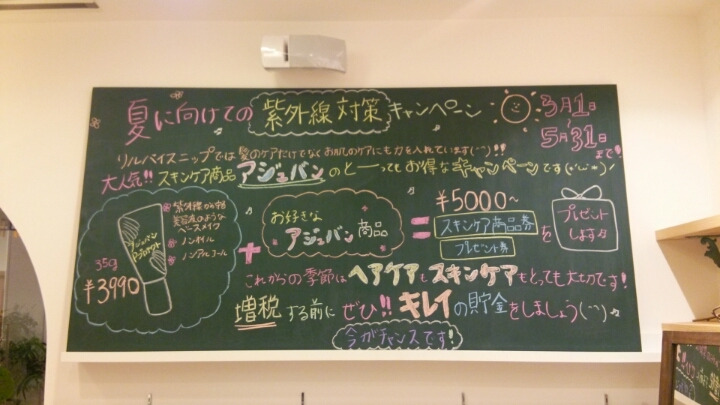 夏に向けての紫外線対策キャンペーン 3月1日
5月31日まで!
リルバイスニップでは髪のケアだけでなくお肌のケアにも力を入れています(^^)!!
大人気!!スキンケア商品アジュバンのとーってもお得なキャンペーンです(･'ω'*)!
紫外線から守る
美容液のような
ベースメイク
ノンオイル
ノンアルコール
アジュバン
35g
¥3990
+
お好きな
アジュバン商品
=
¥5000〜
スキンケア商品券
プレゼント券
を
プレゼント
します
これからの季節はヘアケアもスキンケアもとっても大切です!
増税する前にぜひ!!キレイの貯金をしましょう(^^)
今がチャンスです!